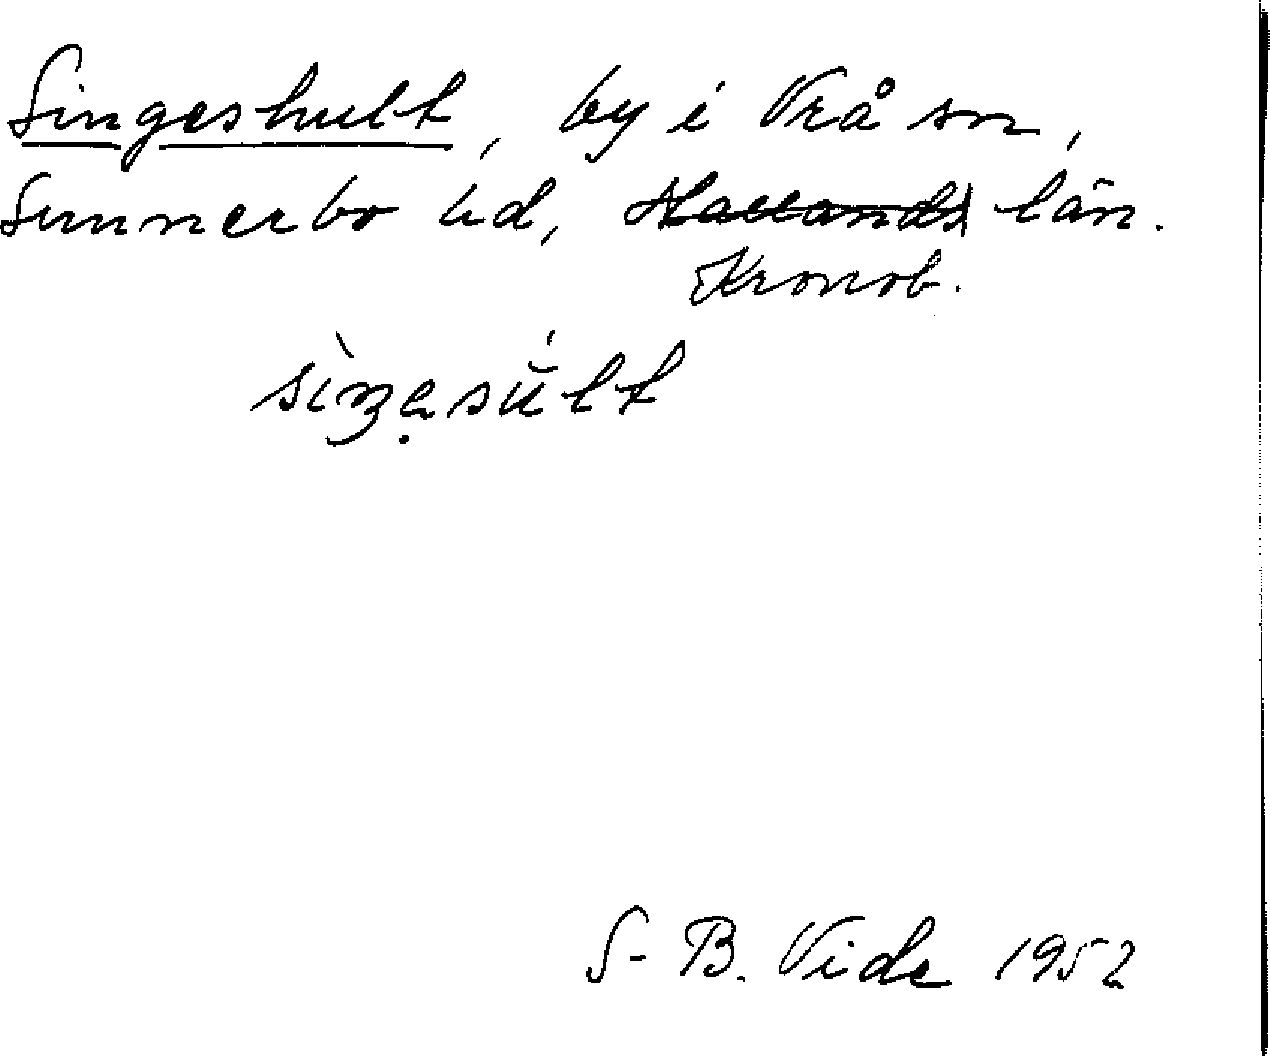 Singeshult, by i Vrå sn,
Sunnerbo hd, Hallands län.
Kronob.
sìŋa̤sŭ́lt
S-B. Vide 1952